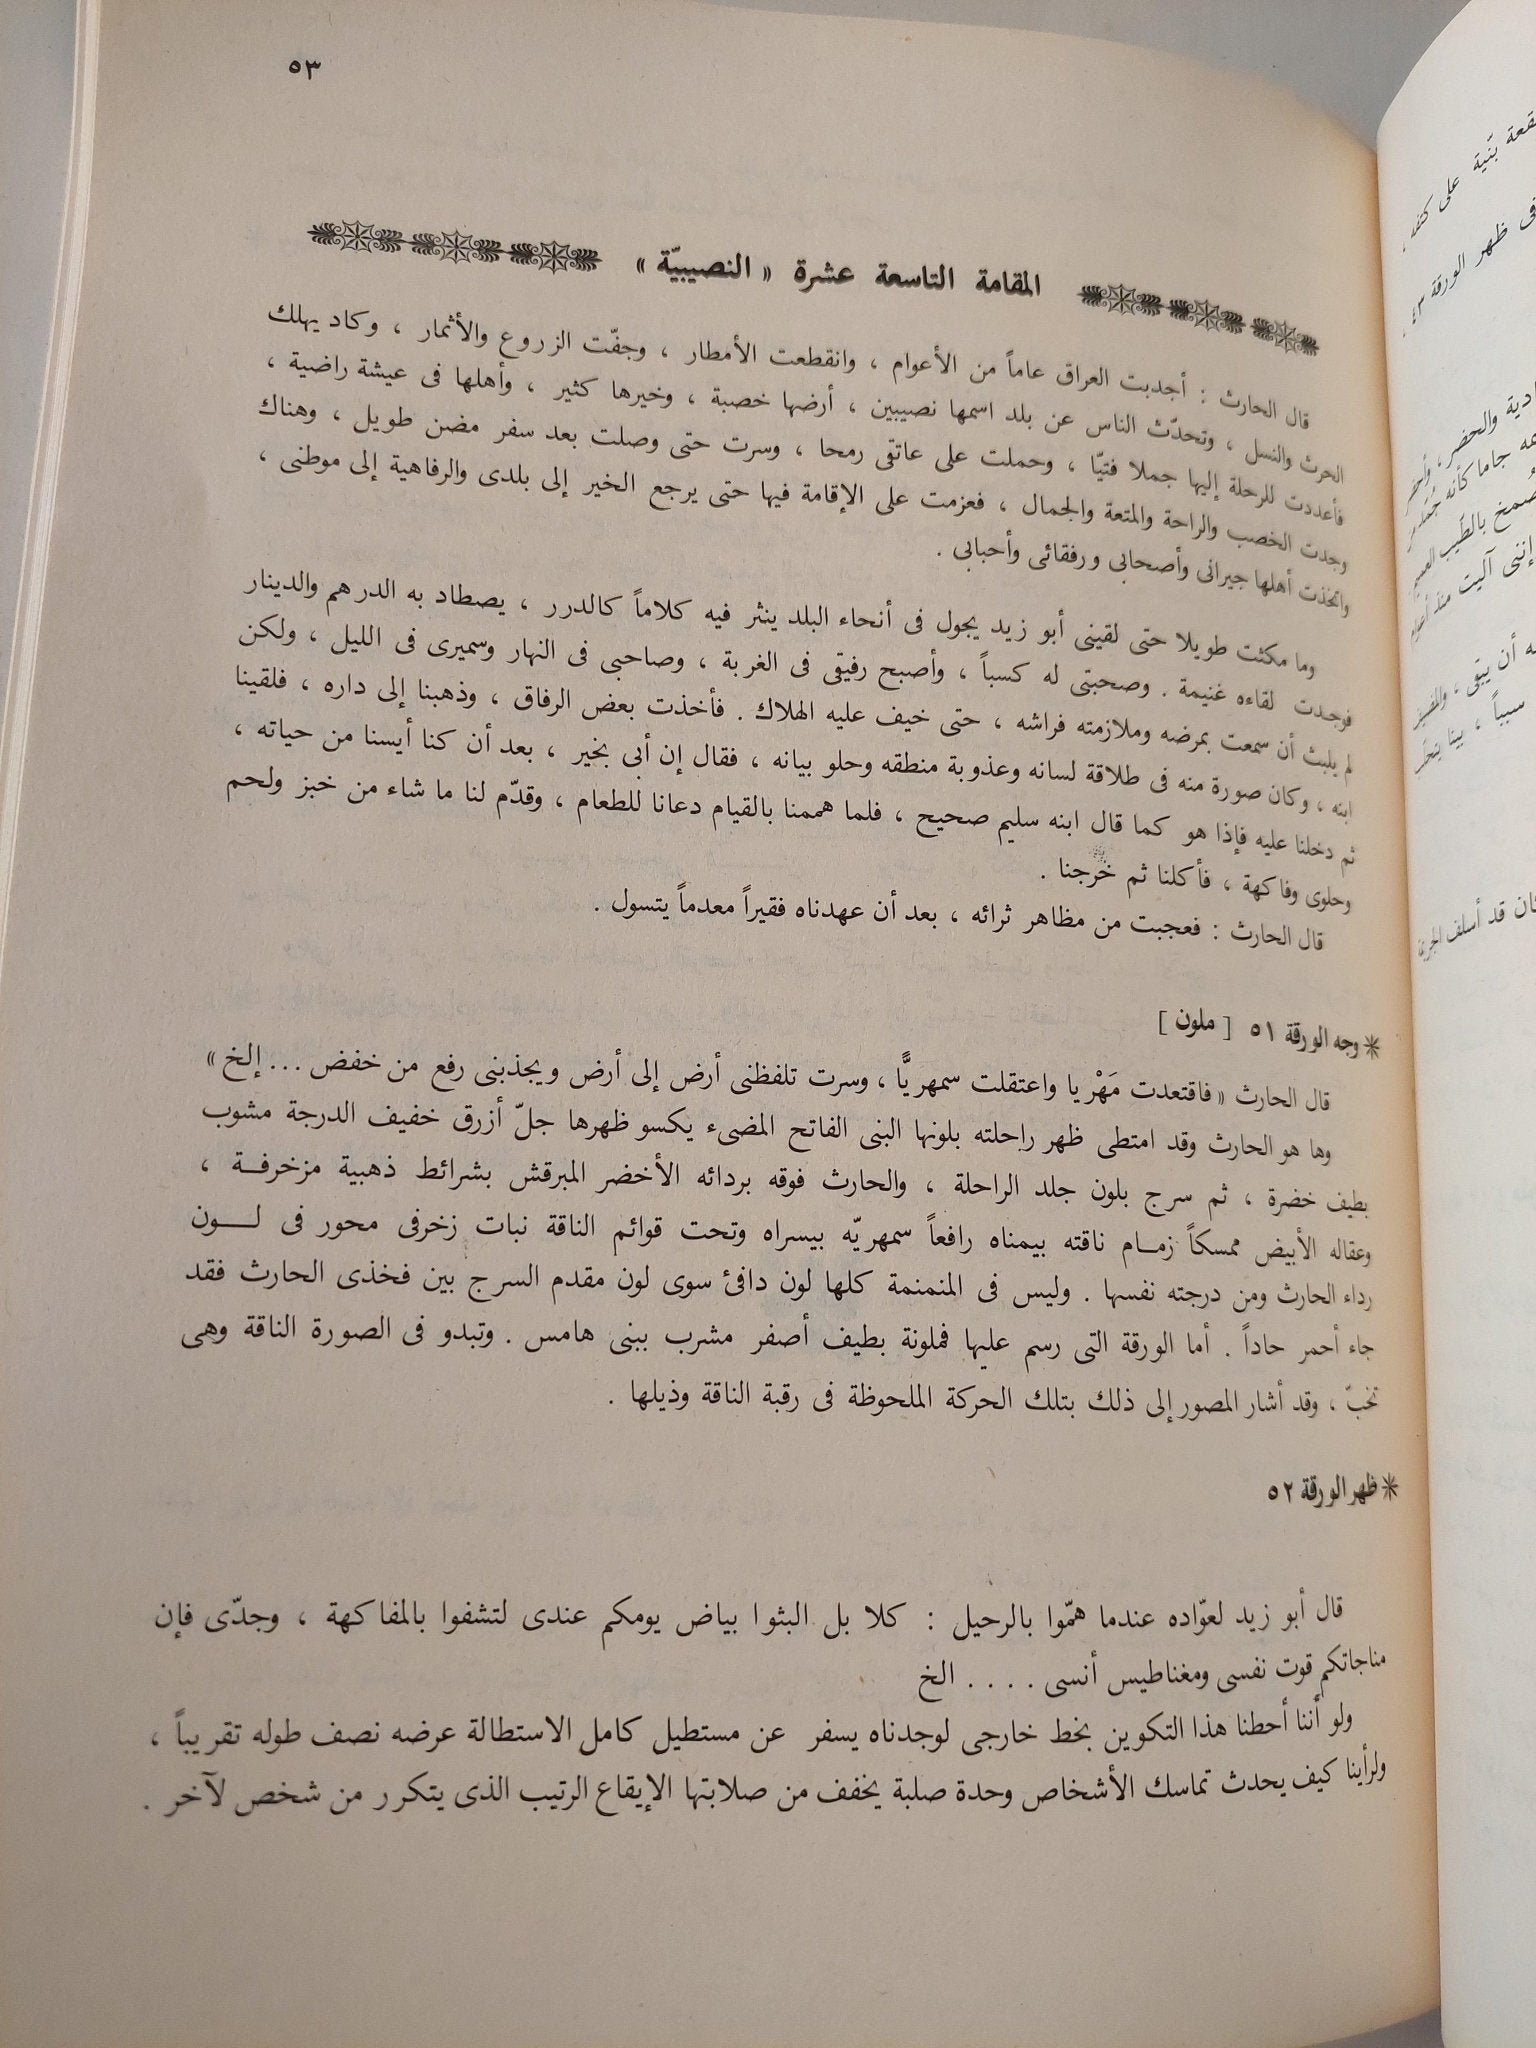 ٥٣
المقامة التاسعة عشرة « النصيبيّة »
قال الحارث : أجدبت العراق عاماً من الأعوام ، وانقطعت الأمطار ، وجفّت الزروع والأثمار ، وكاد يهلك
الحرث والنسل ، وتحدّث الناس عن بلد اسمها نصيبين ، أرضها خصبة ، وخيرها كثير ، وأهلها فى عيشة راضية ،
فأعددت للرحلة إليها جملا فتيّا ، وحملت على عاتقى رمحا ، وسرت حتى وصلت بعد سفر مضن طويل ، وهناك
وجدت الخصب والراحة والمتعة والجمال ، فعزمت على الإقامة فيها حتى يرجع الخير إلى بلدى والرفاهية إلى موطنى ،
واتخذت أهلها جيرانى وأصحابى ورفقائى وأحبابى .
وما مكثت طويلا حتى لقينى أبو زيد يجول فى أنحاء البلد ينثر فيه كلاماً كالدرر ، يصطاد به الدرهم والدينار
فوجدت لقاءه غنيمة . وصحبتى له كسباً ، وأصبح رفيقى فى الغربة ، وصاحبى فى النهار وسميرى فى الليل ، ولكن
لم يلبث أن سمعت بمرضه وملازمته فراشه ، حتى خيف عليه الهلاك . فأخذت بعض الرفاق ، وذهبنا إلى داره ، فلقينا
ابنه ، وكان صورة منه فى طلاقة لسانه وعذوبة منطقه وحلو بيانه ، فقال إن أبى بخير ، بعد أن كنا أيسنا من حياته ،
ثم دخلنا عليه فإذا هو كما قال ابنه سليم صحيح ، فلما هممنا بالقيام دعانا للطعام ، وقدّم لنا ما شاء من خبز ولحم
وحلوى وفاكهة ، فأكلنا ثم خرجنا .
قال الحارث : فعجبت من مظاهر ثرائه ، بعد أن عهدناه فقيراً معدماً يتسول .
* وجه الورقة ٥١ [ ملون ]
قال الحارث « فاقتعدت مَهْريا واعتقلت سمهريًّا ، وسرت تلفظنى أرض إلى أرض ويجذبنى رفع من خفض ... إلخ »
وها هو الحارث وقد امتطى ظهر راحلته بلونها البنى الفاتح المضىء يكسو ظهرها جلّ أزرق خفيف الدرجة مشوب
بطيف خضرة ، ثم سرج بلون جلد الراحلة ، والحارث فوقه بردائه الأخضر المبرقش بشرائط ذهبية مزخرفـة ،
وعقاله الأبيض ممسكاً زمـام ناقته بيمناه رافعاً سمهريّه بيسراه وتحت قوائم الناقة نبات زخرفى محور فى لـــون
رداء الحارث ومن درجته نفسها . وليس فى المنمنمة كلها لون دافئ سوى لون مقدم السرج بين فخذى الحارث فقد
جاء أحمر حاداً . أما الورقة التى رسم عليها فملونة بطيف أصفر مشرب ببنى هامس . وتبدو فى الصورة الناقة وهى
تخبّ ، وقد أشار المصور إلى ذلك بتلك الحركة الملحوظة فى رقبة الناقة وذيلها .
* ظهر الورقة ٥٢
قال أبو زيد لعوّاده عندما همّوا بالرحيل : كلا بل البثوا بياض يومكم عندى لتشفوا بالمفاكهة ، وجدّى فإن
مناجاتكم قوت نفسى ومغناطيس أنسى . . . . الخ
ولو أننا أحطنا هذا التكوين بخط خارجى لوجدناه يسفر عن مستطيل كامل الاستطالة عرضه نصف طوله تقريباً ،
ولرأينا كيف يحدث تماسك الأشخاص وحدة صلبة يخفف من صلابتها الإيقاع الرتيب الذى يتكرر من شخص لآخر .
بنّية على كتفه ،
ظهر الورقة ٤٣ ،
والحضر ،
جاما كأنه
بالطّيب
إننى آليت
أن يبقى ،
سبباً ، بينا
قد أسلف